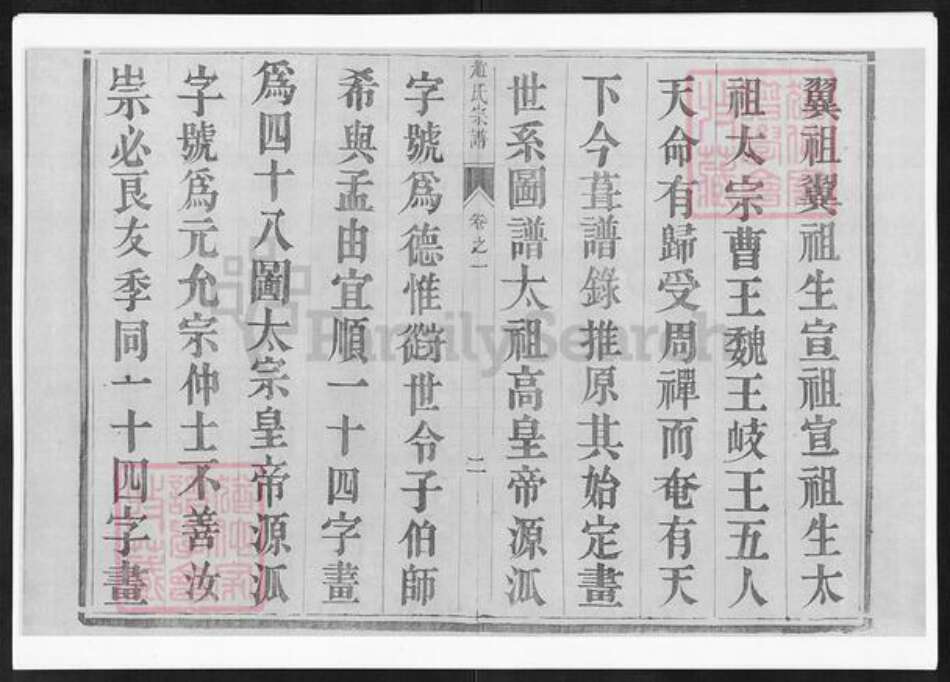 翼祖翼祖生宣祖宣祖生太
祖太宗曹王魏王岐王五人
天命有歸受周禪而奄有天
下今葺譜錄推原其始定畫
世系圖譜太祖高皇帝源泒
字號爲德惟從世令子伯師
希與孟由宜順一十四字畫
爲四十八圖太宗皇帝源泒
字號爲元允宗仲士不善汝
崇必良友季同一十四字畫
趙氏宗譜 卷之一 二
FamilySearch